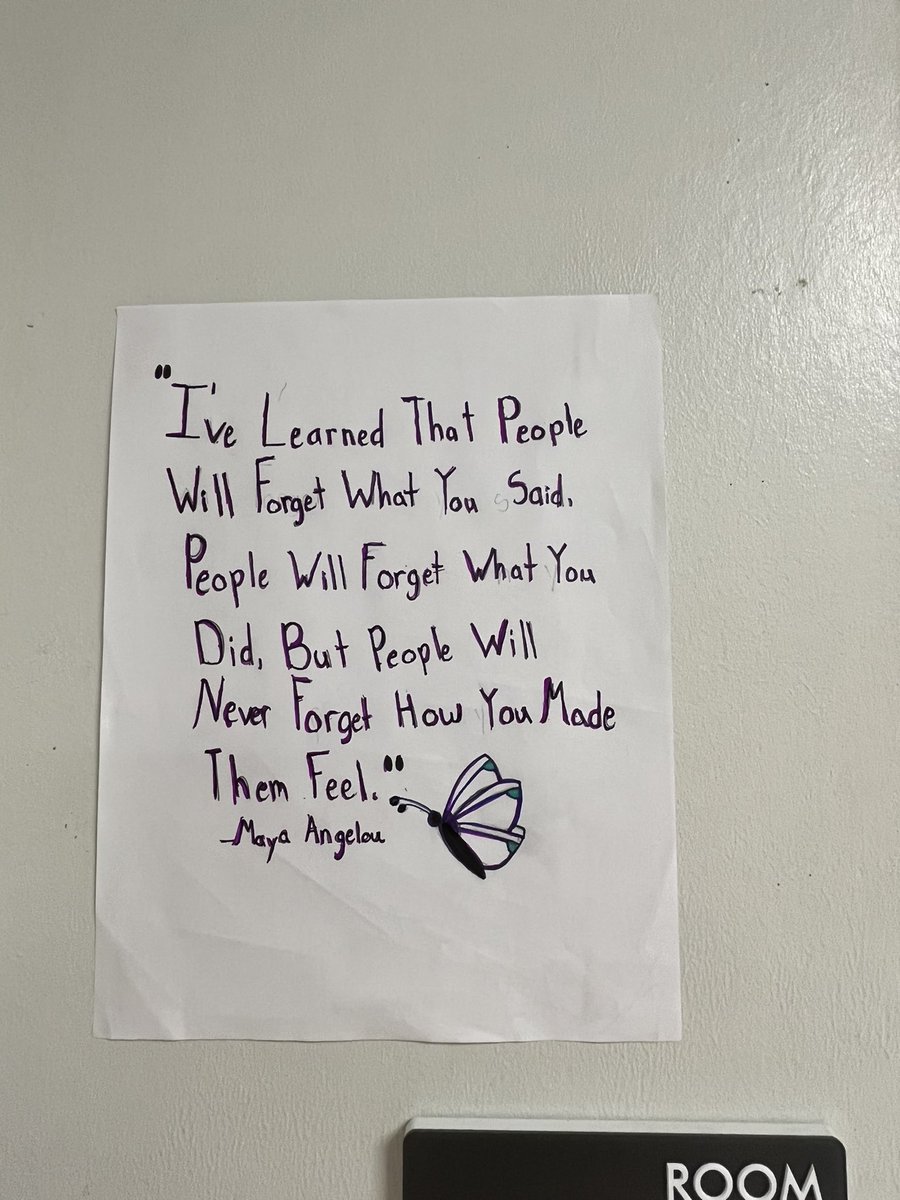 "I've Learned That People
Will Forget What You Said,
People Will Forget What You
Did, But People Will
Never Forget How You Made
Them Feel."
-Maya Angelou
ROOM